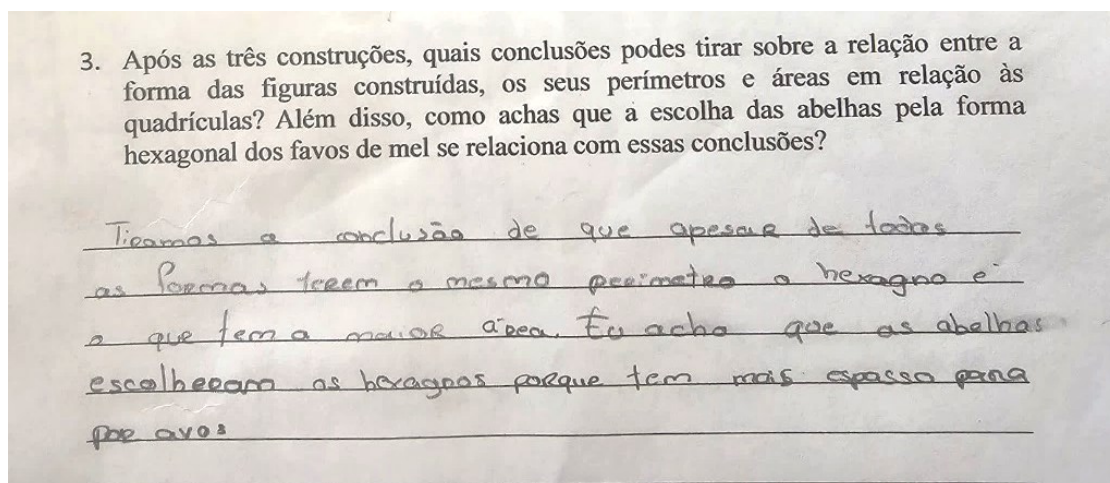 3. Após as três construções, quais conclusões podes tirar sobre a relação entre a
forma das figuras construídas, os seus perímetros e áreas em relação às
quadrículas? Além disso, como achas que a escolha das abelhas pela forma
hexagonal dos favos de mel se relaciona com essas conclusões?
Tiramos a conclusão de que apesar de todas
as formas terem o mesmo perimetro o hexagno é
o que tem a maior área. Eu acho que as abelhas
escolheram os hexagnos porque tem mais espasso para
por avos